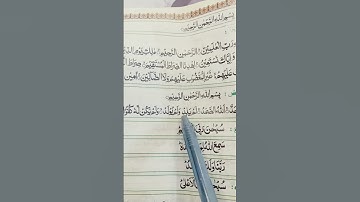 بِسْمِ اللهِ الرَّحْمٰنِ الرَّحِيْمِ
رَبِّ الْعٰلَمِيْنَ الرَّحْمٰنِ الرَّحِيْمِ مٰلِكِ يَوْمِ الدِّيْنِ
وَ اِيَّاكَ نَسْتَعِيْنُ اِهْدِنَا الصِّرَاطَ الْمُسْتَقِيْمَ صِرَاطَ
عَلَيْهِمْ غَيْرِ الْمَغْضُوْبِ عَلَيْهِمْ وَلَا الضَّآلِّيْنَ اٰمِيْن
بِسْمِ اللهِ الرَّحْمٰنِ الرَّحِيْمِ
اَللهُ الصَّمَدُ لَمْ يَلِدْ وَلَمْ يُوْلَدْ وَلَمْ يَكُنْ لَّهٗ كُفُوًا
سُبْحٰنَ رَبِّيَ
سَمِعَ اللهُ
رَبَّنَا
سُبْحٰنَ الْاَعْلٰى